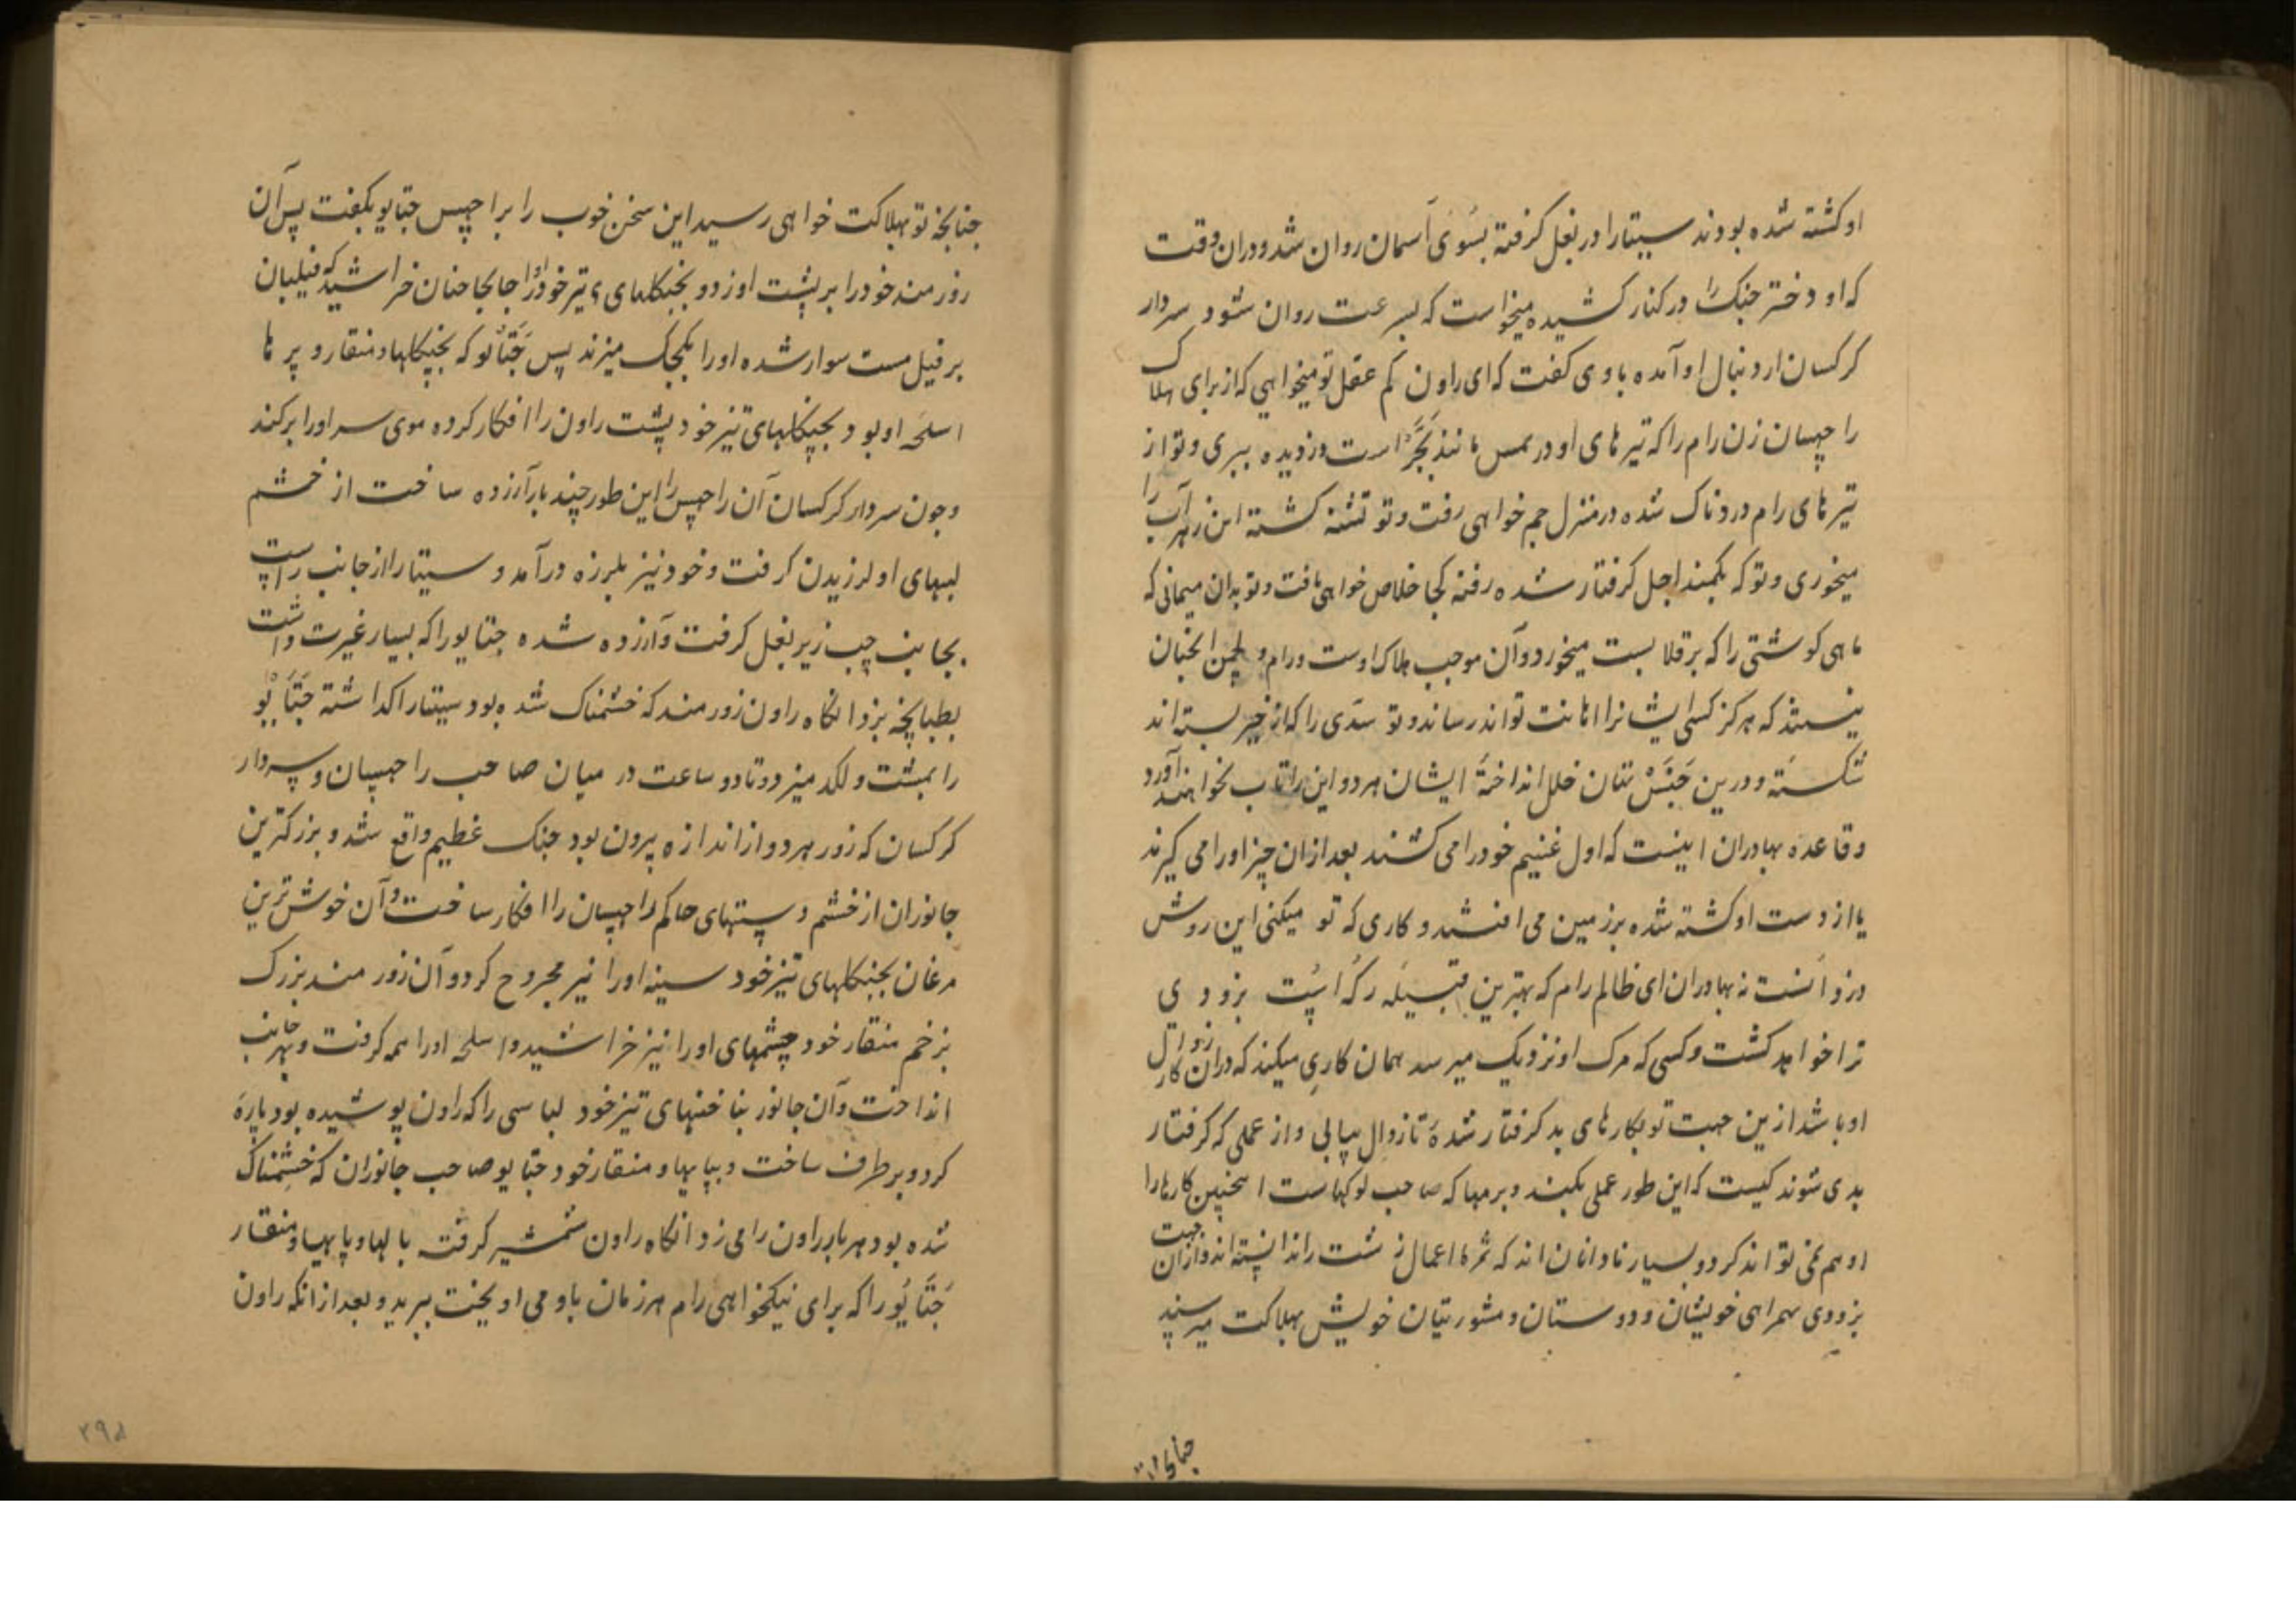 او کشته شده بودند سیتا را در بغل کرفته بسوی آسمان روان شد و دران وقت
که او دختر جنک را در کنار کشیده میخواست که بسرعت روان شود سردار
کرکسان از دنبال او آمده با وی کفت که ای راون کم عقل تو میخواهی که از برای هلاک
راچهسان زن رام را که تیرهای او در لمس مانند بجر است دزدیده ببری و تو از
تیرهای رام دردناک شده در منزل جم خواهی رفت و تو تشنه کشته این زهرآب را
میخوری و تو که بکمند اجل کرفتار شده رفته کجا خلاص خواهی یافت و تو بدان میمانی که
ماهی کوشتی را که بر قلابست میخورد و آن موجب هلاک اوست و رام و لچمن آنچنان
نیستند که هرکز کسی ایشانرا اهانت تواند رساند و تو سدی را که از خیر بسته اند
شکسته و درین جنس تنان خلل انداختهٔ ایشان هر دو این را تاب نخواهند آورد
و قاعده بهادران اینست که اول غنیم خود را می کشند بعد ازان چیز او را می کیرند
یا از دست او کشته شده بر زمین می افتند و کاری که تو میکنی این روش
دزدانست نه بهادران ای ظالم رام که بهترین قبیله رکه است بزودی
ترا خواهد کشت و کسی که مرک او نزدیک میرسد همان کاری میکند که دران کار زوال
او باشد ازین جهت تو بکارهای بد کرفتار شدهٔ تا زوال بیابی و از عملی که کرفتار
بدی شوند کیست که این طور عملی بکند و برمها که صاحب لوکهاست اینچنین کارها را
او هم نمی تواند کرد و بسیار نادانان اند که ثمرهٔ اعمال زشت را ندانسته اند و ازان جهت
بزودی همراهی خویشان و دوستان و مشورتیان خویش بهلاکت میرسند
چنانچه تو
چنانچه تو بهلاکت خواهی رسید این سخن خوب را براچهس جتایو بکفت پس آن
زورمند خود را بر پشت او زد و بچنکلهای تیز خود او را جابجا چنان خراشید که فیلبان
بر فیل مست سوار شده او را بکجک میزند پس جتایو که بچنکلها و منقار و پرها
اسلحه او بود بچنکلهای تیز خود پشت راون را افکار کرده موی سر او را برکند
و چون سردار کرکسان آن راچهس را این طور چند بار آزرده ساخت از خشم
لبهای او لرزیدن کرفت و خود نیز بلرزه درآمد و سیتا را از جانب راست
بجانب چپ زیر بغل کرفت و آزرده شده جتایو را که بسیار غیرت داشت
بطبانچه بزد انکاه راون زورمند که خشمناک شده بود سیتا را کذاشته جتایو
را بمشت و لکد میزد و تا دو ساعت در میان صاحب راچهسان و سردار
کرکسان که زور هر دو از اندازه بیرون بود جنک عظیم واقع شد و بزرکترین
جانوران از خشم دستهای حاکم راچهسان را افکار ساخت و آن خوش ترین
مرغان بچنکلهای تیز خود سینه او را نیز مجروح کرد و آن زورمند بزرک
بزخم منقار خود چشمهای او را نیز خراشید و اسلحه او را همه کرفت و بهر جانب
انداخت و آن جانور بناخنهای تیز خود لباسی را که راون پوشیده بود پاره
کرد و برطرف ساخت و بپایها و منقار خود جتایو صاحب جانوران که خشمناک
شده بود هر بار راون را می زد انکاه راون شمشیر کرفته بالها و پایها و منقار
جتایو را که برای نیکخواهی رام هر زمان با وی می آویخت ببرید و بعد ازانکه راون
۲۹۵